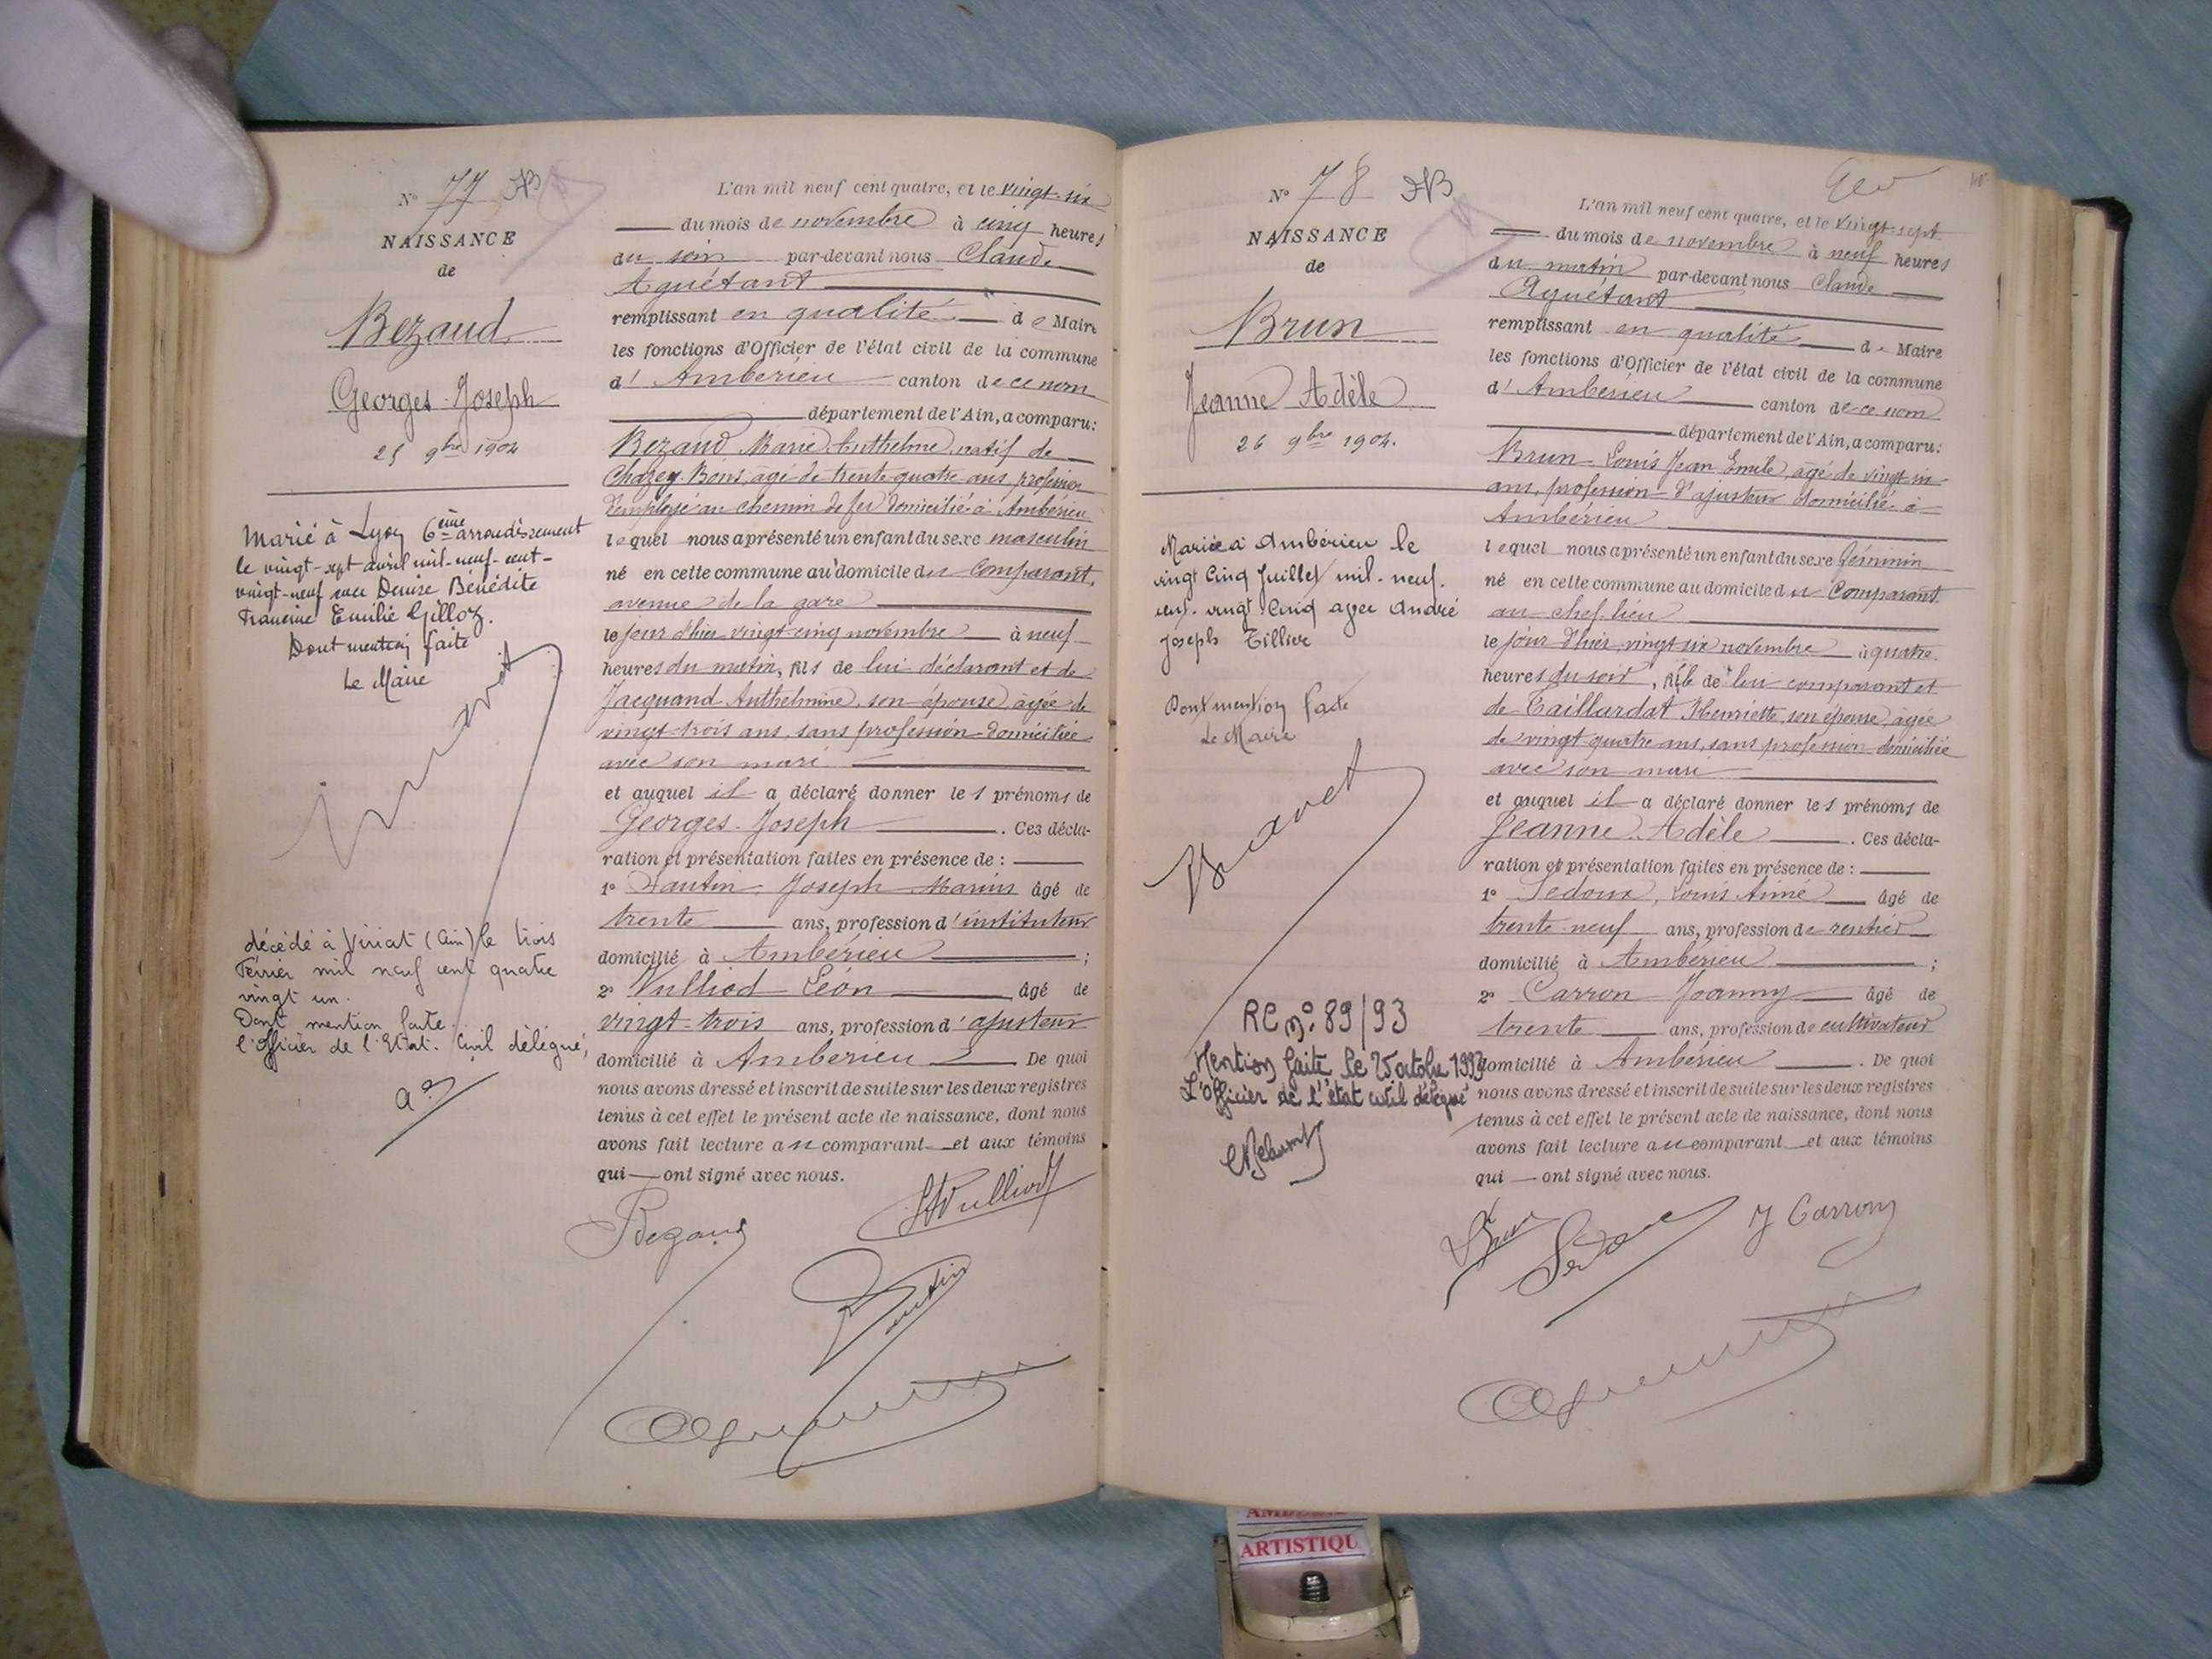 N° 77
NAISSANCE
de
Bezaud
Georges Joseph
25 9bre 1904
Marié à Lyon 6ème arrondissement
le vingt-sept avril mil-neuf-cent-
vingt-neuf avec Denise Bénédite
Francine Emilie Gilloz.
Dont mention faite
Le Maire
décédé à Viriat (Ain) le trois
Février mil neuf cent quatre
vingt un.
Dont mention faite.
l'Officier de l'Etat-Civil délégué,
L'an mil neuf cent quatre, et le vingt-six
du mois de novembre à cinq heures
du soir par-devant nous Claude
Aguétant
remplissant en qualité de Maire
les fonctions d'Officier de l'état civil de la commune
d'Ambérieu canton de ce nom
département de l'Ain, a comparu:
Bezaud Marie Anthelme, natif de
Chazey-Bons, âgé de trente-quatre ans, profession
d'employé au chemin de fer domicilié à Ambérieu
lequel nous a présenté un enfant du sexe masculin
né en cette commune au domicile du Comparant,
avenue de la gare
le jour d'hier vingt-cinq novembre à neuf
heures du matin, fils de lui déclarant et de
Jacquand Anthelmine, son épouse, âgée de
vingt-trois ans, sans profession domiciliée
avec son mari
et auquel il a déclaré donner les prénoms de
Georges Joseph . Ces décla-
ration et présentation faites en présence de :
1° Joseph Marius âgé de
trente ans, profession d'instituteur
domicilié à Ambérieu ;
2° Vulliod Léon âgé de
vingt-trois ans, profession d'ajusteur
domicilié à Ambérieu . De quoi
nous avons dressé et inscrit de suite sur les deux registres
tenus à cet effet le présent acte de naissance, dont nous
avons fait lecture au comparant et aux témoins
qui ont signé avec nous.
Bezaud
Vulliod
N° 78
NAISSANCE
de
Brun
Jeanne Adèle
26 9bre 1904.
Mariée à Ambérieu le
vingt Cinq Juillet mil-neuf-
cent-vingt Cinq avec André
Joseph Tillier
Dont mention faite
Le Maire
RC n° 89/93
Mention faite le octobre 1993
L'Officier de l'état civil délégué
L'an mil neuf cent quatre, et le vingt-sept
du mois de novembre à neuf heures
du matin par-devant nous Claude
Aguétant
remplissant en qualité de Maire
les fonctions d'Officier de l'état civil de la commune
d'Ambérieu canton de ce nom
département de l'Ain, a comparu:
Brun Louis Jean Emile, âgé de vingt-six
ans, profession d'ajusteur domicilié à
Ambérieu
lequel nous a présenté un enfant du sexe féminin
né en cette commune au domicile du Comparant
au chef-lieu
le jour d'hier, vingt-six novembre à quatre
heures du soir, fille de lui comparant et
de Taillardat Henriette, son épouse, âgée
de vingt-quatre ans, sans profession domiciliée
avec son mari
et auquel il a déclaré donner les prénoms de
Jeanne Adèle . Ces décla-
ration et présentation faites en présence de :
1° Louis Aimé âgé de
trente-neuf ans, profession de rentier
domicilié à Ambérieu ;
2° Carron Joanny âgé de
trente ans, profession de cultivateur
domicilié à Ambérieu . De quoi
nous avons dressé et inscrit de suite sur les deux registres
tenus à cet effet le présent acte de naissance, dont nous
avons fait lecture au comparant et aux témoins
qui ont signé avec nous.
J Carron
ARTISTIQU